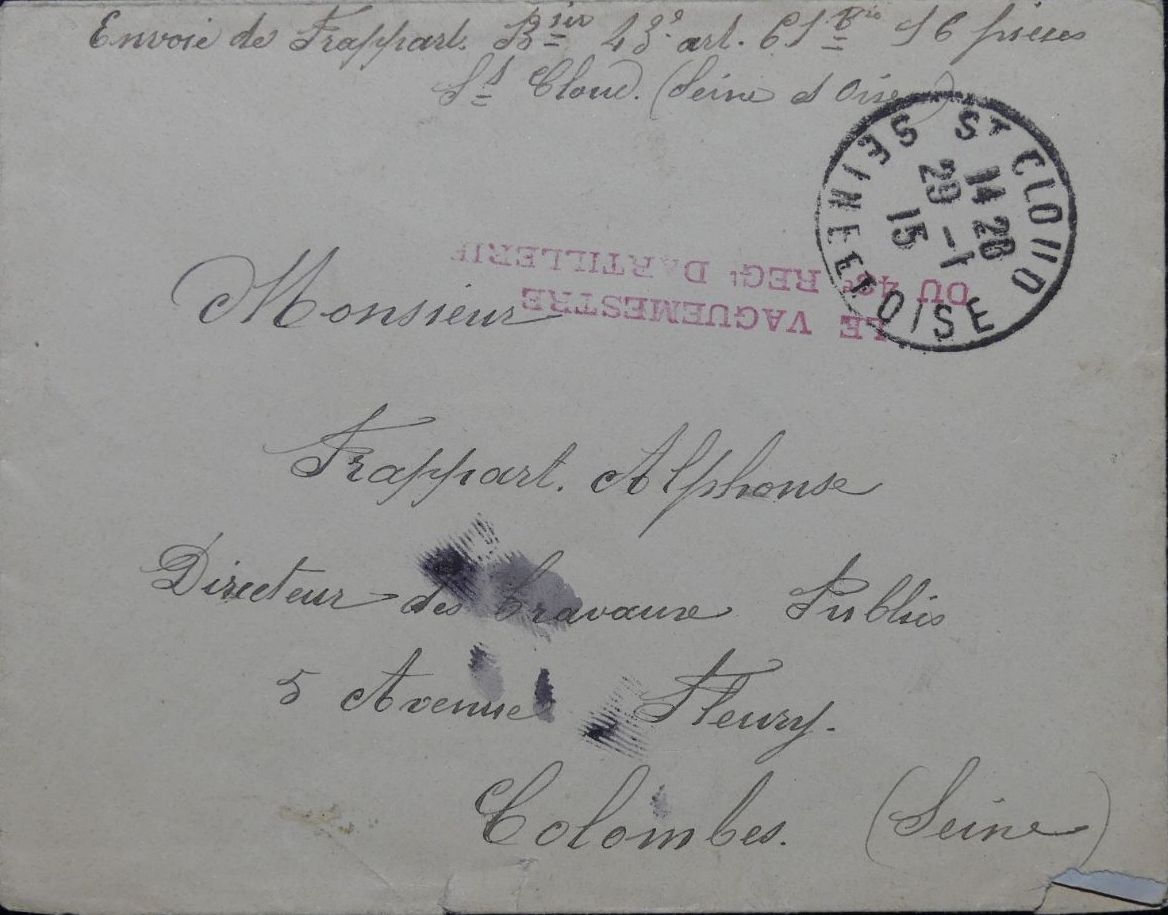 Envoie de Frappart. Bier 43e art. 61 Bie 16 pièces
St Cloud. (Seine et Oise)
St CLOUD
14 20
29 -1
15
SEINE ET OISE
LE VAGUEMESTRE
DU 43e REGt D'ARTILLERIE
Monsieur
Frappart. Alphonse
Directeur des travaux Publics
5 Avenue Fleury.
Colombes. (Seine)